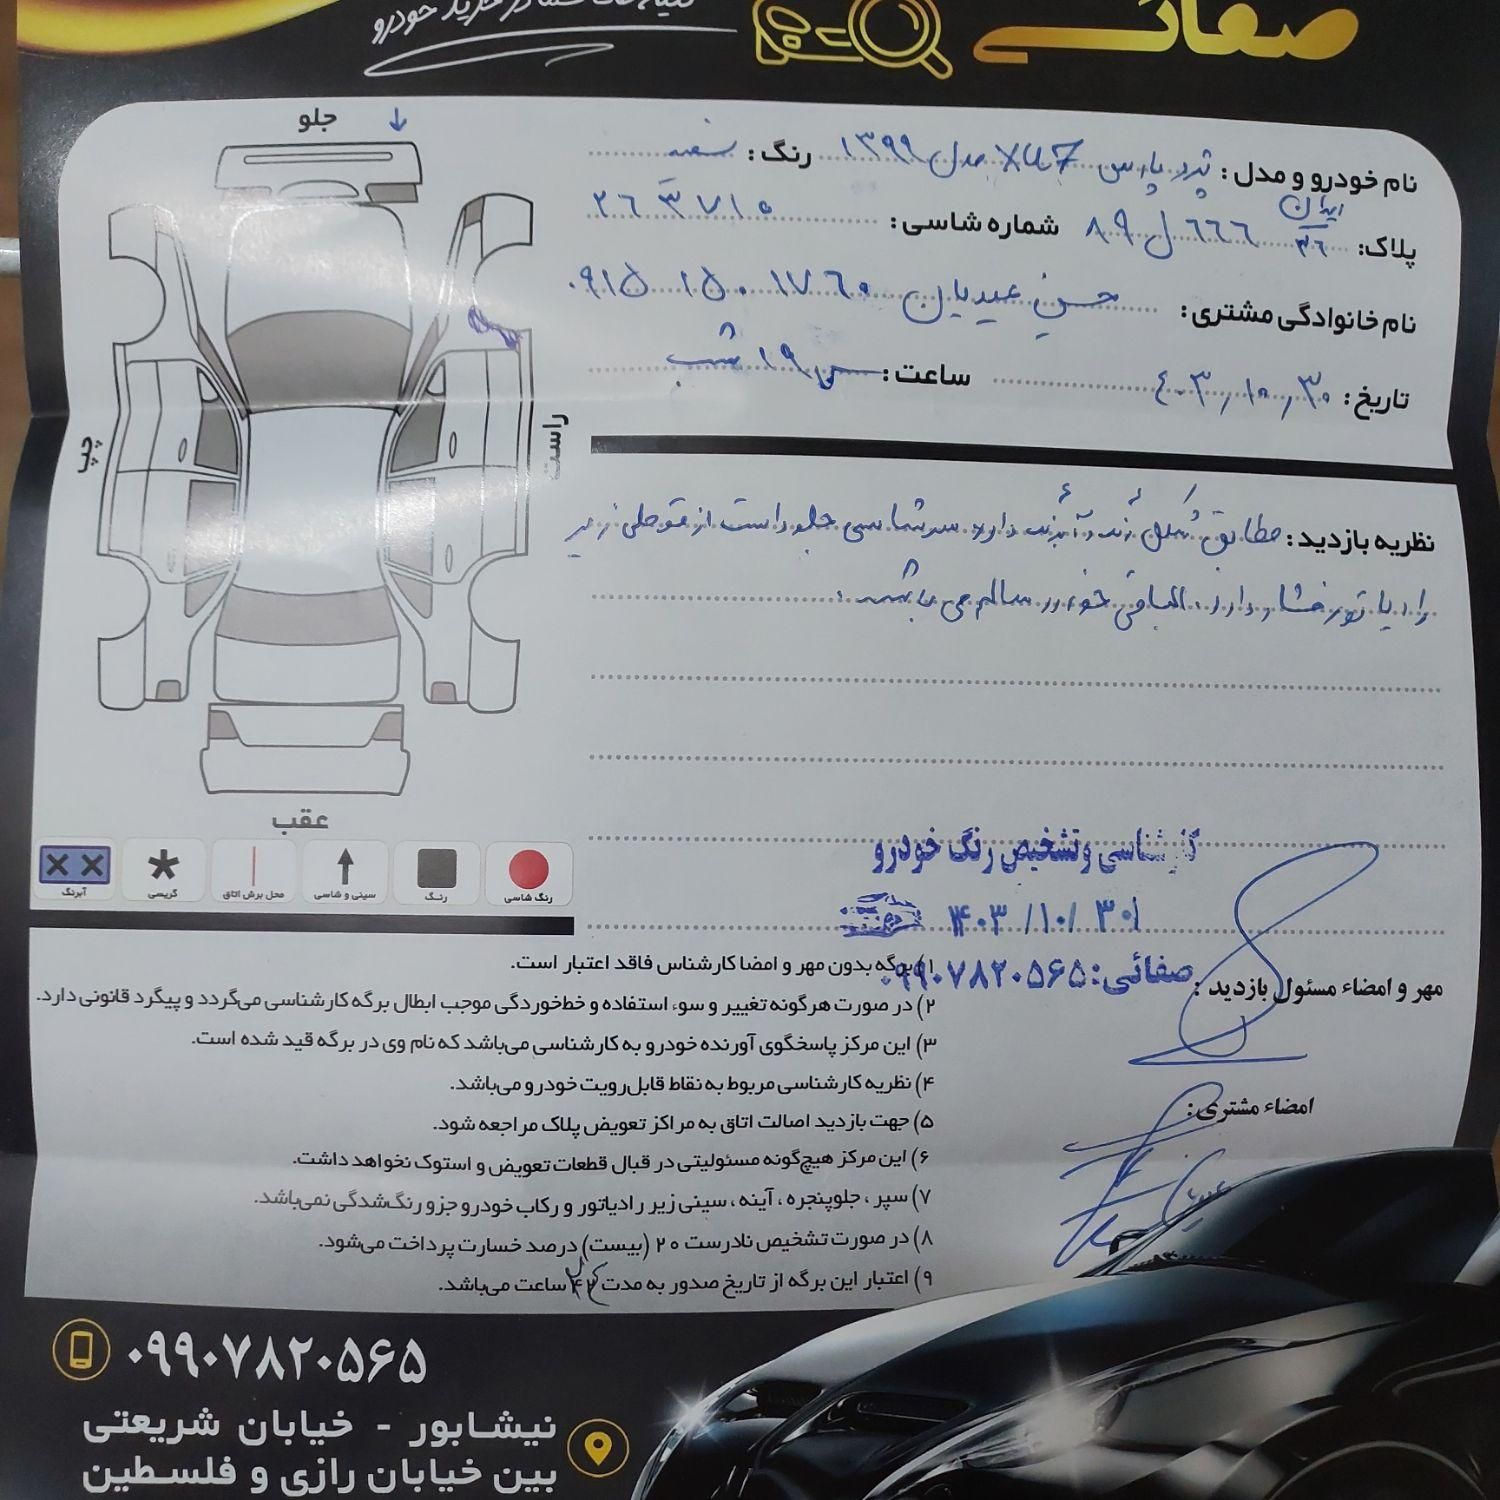 صفائی
نام خودرو و مدل: پژو پارس XU7 مدل ۱۳۹۹ رنگ: سفید
پلاک: ایران ۳۶ ۶۶۶ ل ۸۹ شماره شاسی: ۲۶۳۷۱۰
نام خانوادگی مشتری: حسن عیدیان ۰۹۱۵۱۵۰۱۷۶۰
تاریخ: ۴۰۳/۱۰/۳۰ ساعت: ۱۹ شب
نظریه بازدید: مطابق شکل دارد سرشاسی جلو راست از قوطی زیر
رادیاتور فشار دارد. الباقی خودرو سالم می باشد.
جلو
چپ
راست
عقب
رنگ شاسی
رنگ
سینی و شاسی
محل برش اتاق
گریسی
آبرنگ
کارشناسی و تشخیص رنگ خودرو
۱۴۰۳/۱۰/۳۰
صفائی: ۰۹۹۰۷۸۲۰۵۶۵
مهر و امضاء مسئول بازدید :
امضاء مشتری:
۱) برگه بدون مهر و امضا کارشناس فاقد اعتبار است.
۲) در صورت هرگونه تغییر و سوء استفاده و خط‌خوردگی موجب ابطال برگه کارشناسی می‌گردد و پیگرد قانونی دارد.
۳) این مرکز پاسخگوی آورنده خودرو به کارشناسی می‌باشد که نام وی در برگه قید شده است.
۴) نظریه کارشناسی مربوط به نقاط قابل رویت خودرو می‌باشد.
۵) جهت بازدید اصالت اتاق به مراکز تعویض پلاک مراجعه شود.
۶) این مرکز هیچ‌گونه مسئولیتی در قبال قطعات تعویض و استوک نخواهد داشت.
۷) سپر ، جلوپنجره ، آینه ، سینی زیر رادیاتور و رکاب خودرو جزو رنگ‌شدگی نمی‌باشد.
۸) در صورت تشخیص نادرست ۲۰ (بیست) درصد خسارت پرداخت می‌شود.
۹) اعتبار این برگه از تاریخ صدور به مدت ساعت می‌باشد.
۰۹۹۰۷۸۲۰۵۶۵
نیشابور - خیابان شریعتی
بین خیابان رازی و فلسطین